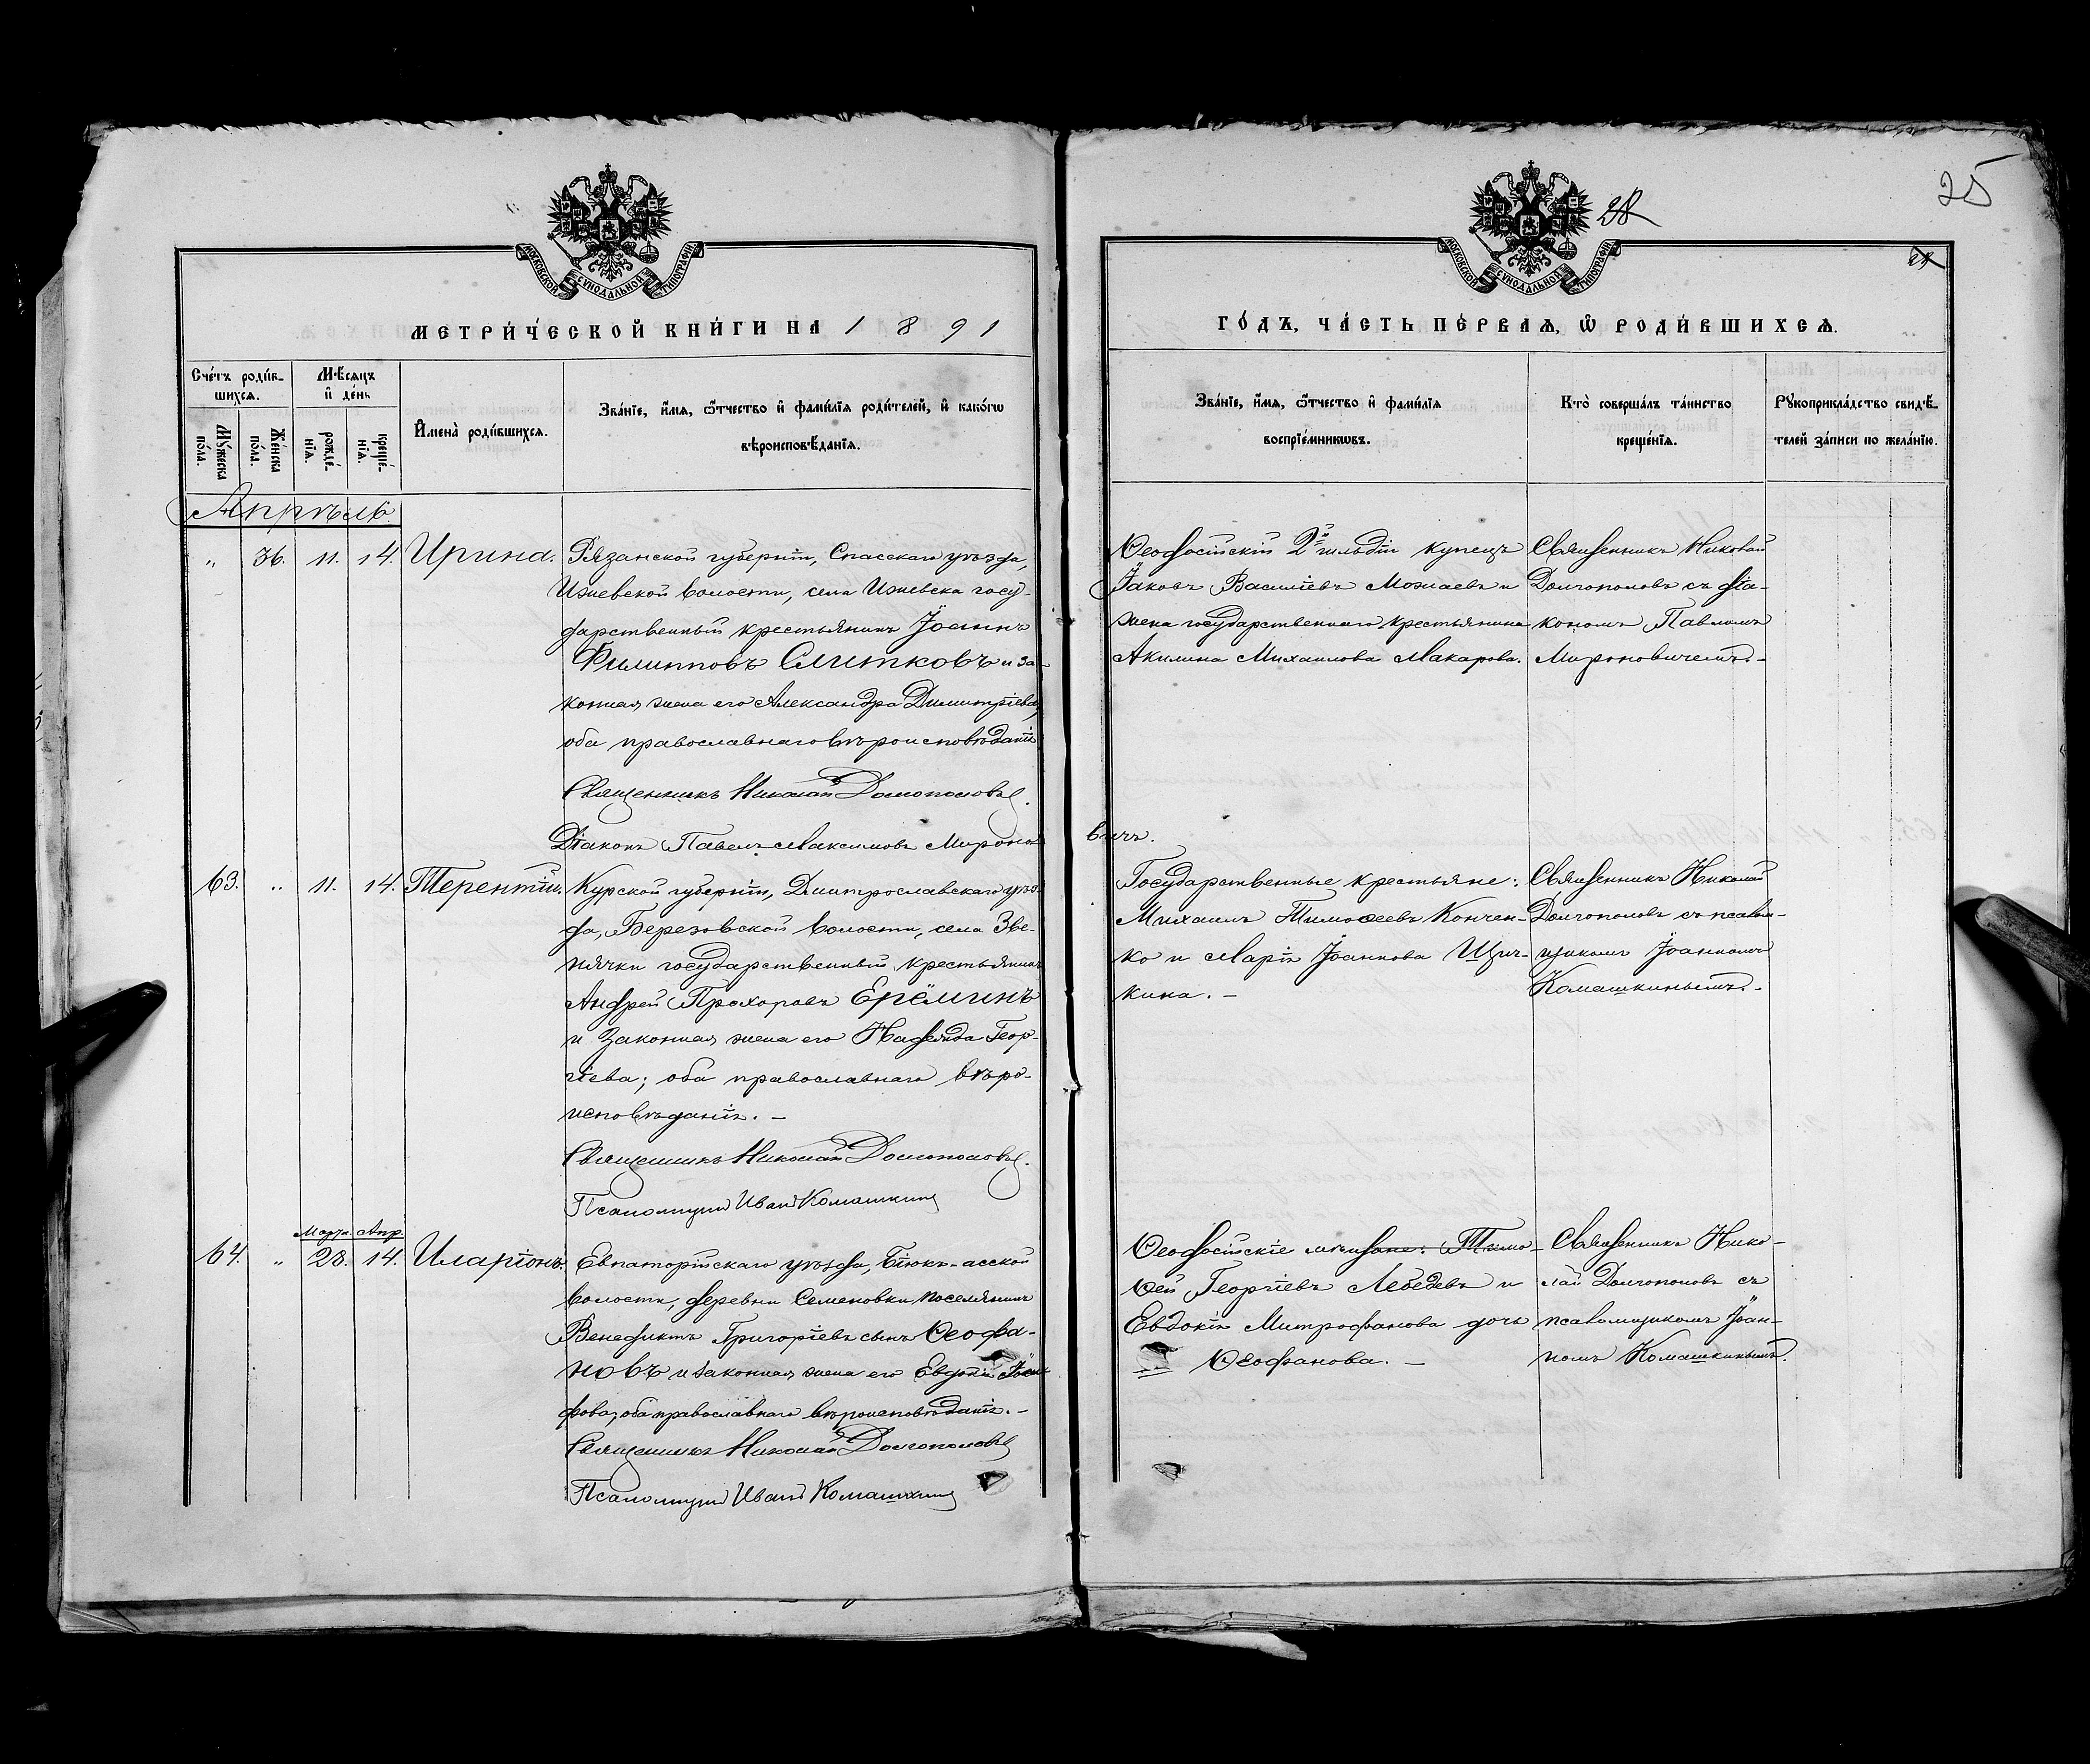 25
28
МОСКОВСКОЙ СУНОДАЛЬНОЙ ТИПОГРАФІИ
МОСКОВСКОЙ СУНОДАЛЬНОЙ ТИПОГРАФІИ
МЕТРИ́ЧЕСКОЙ КНИ́ГИ НА 1891
ГО́ДЪ, ЧА́СТЬ ПЕ́РВАЯ, Ѡ҆ РОДИ́ВШИХСѦ.
Сче́тъ роди́в-
шихсѧ.
Мꙋ́жеска
по́ла.
Же́нска
по́ла.
Мѣ́сѧцъ
и҆ де́нь
рожде́-
нїѧ.
креще́-
нїѧ.
И҆мена̀ роди́вшихсѧ.
Зва́нїе, и҆́мѧ, ѻ҆́тчество и҆ фами́лїѧ роди́телей, и҆ како́гѡ
вѣроисповѣ́данїѧ.
Зва́нїе, и҆́мѧ, ѻ҆́тчество и҆ фами́лїѧ
воспрїе́мникѡвъ.
Кто̀ соверша́лъ та́инство
креще́нїѧ.
Рꙋкоприкла́дство свидѣ́-
телей за́писи по жела́нїю.
Апрѣль
„ 36. 11. 14. Ирина.
Рязанской губерніи, Спасскаго уѣзда,
Ижевской волости, села Ижевска госу-
дарственный крестьянинъ Іоаннъ
Филипповъ Слитковъ и за-
конная жена его Александра Димитріева,
оба православнаго вѣроисповѣданія
Священникъ Николай Долгополовъ.
Діаконъ Павелъ Максимовъ Мироно-
вичъ.
Ѳеодосійскій 2й гильдіи купецъ
Іаковъ ВасиліевъМожаевъ и
жена государственнаго крестьянина
Акилина Михаилова Макарова.
Священникъ Николай
Долгополовъ съ діа-
кономъ Павломъ
Мироновичемъ.-
63. „ 11. 14. Терентій.
Курской губерніи, Дмитрославскаго уѣз-
да, Березовской волости, села Зве-
нячки государственный крестьянинъ
Андрей Прохоровъ Ерёминъ
и законная жена его Надежда Геор-
гіева; оба православнаго вѣро-
исповѣданія. -
Священникъ Николай Долгополовъ.
Псаломщикъ Иванъ Комашкинъ
Государственные крестьяне:
Михаилъ Тимоѳеевъ Кончен-
ко и Марія Іоаннова Щич-
кина. -
Священникъ Николай
Долгополовъ съ псалом-
щикомъ Іоанномъ
Комашкинымъ.-
Марта. Апр.
64. „ 28. 14. Иларіонъ.
Евпаторійскаго уѣзда, Біюкъ-асской
волости, деревни Семеновки, поселянинъ
Венедиктъ Григоріевъ сынъ Ѳеофа-
новъ и законная жена его Евдокія
фова, оба православнаго вѣроисповѣданія. -
Священникъ Николай Долгополовъ
Псаломщикъ Иванъ Комашкинъ
Ѳеодосійскіе мѣщане: Тимо-
ѳей Георгіевъ Лебедевъ и
Евдокія Митрофанова дочь
Ѳеофанова. -
Священникъ Нико-
лай Долгополовъ съ
псаломщикомъ Іоан-
номъ Комашкинымъ.